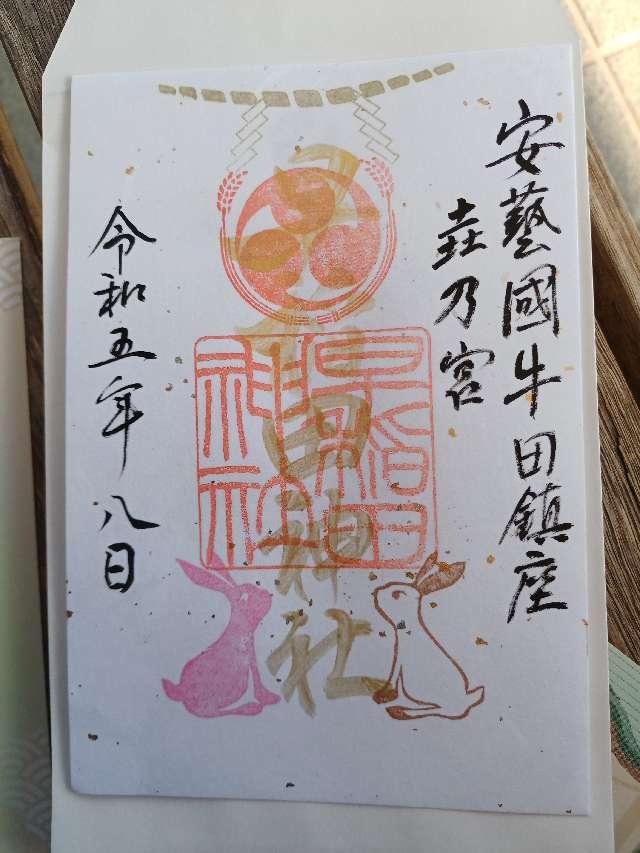 安藝國牛田鎮座
壵乃宮
早稲田神社
早稲田神社
令和五年 八日